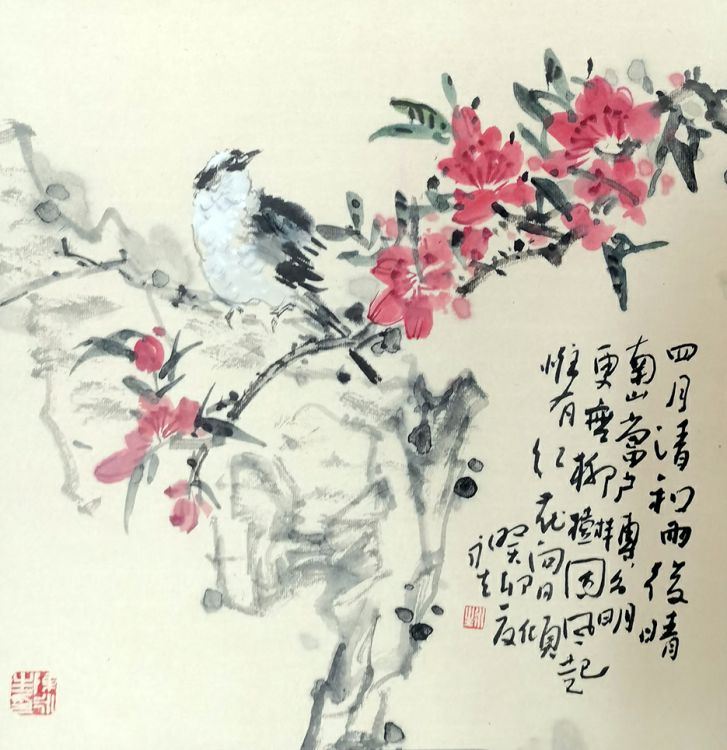 四月清和雨後晴
南山當户轉分明
更無柳因風起
惟有红花向日傾
癸卯夏